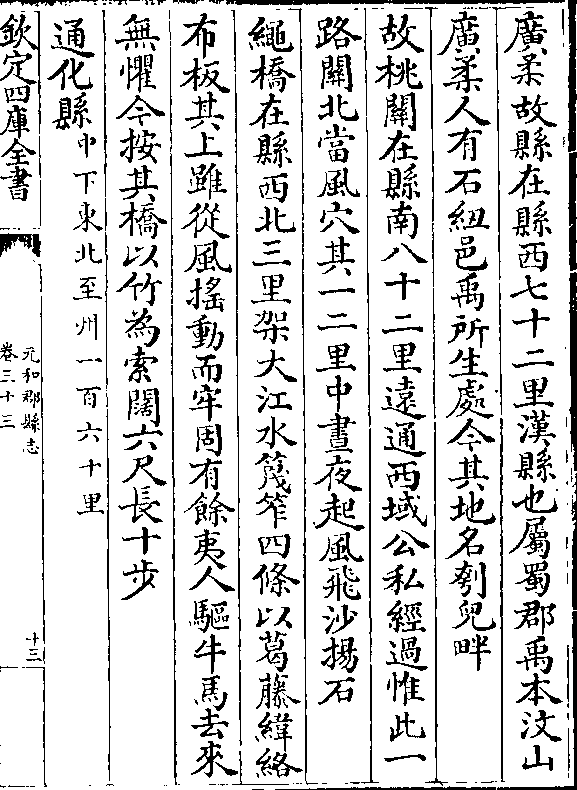 廣柔故縣在縣西七十二里漢縣也屬蜀郡禹本汶山
廣柔人有石紐邑禹所生處今其地名刳兒畔
故桃關在縣南八十二里遠通西域公私經過惟此一
路關北當風穴其一二里中晝夜起風飛沙揚石
繩橋在縣西北三里架大江水篾笮四條以葛藤緯絡
布板其上雖從風搖動而牢固有餘夷人驅牛馬去來
無懼今按其橋以竹為索闊六尺長十步
通化縣中下東北至州一百六十里
欽定四庫全書
元和郡縣志
卷三十三
十三